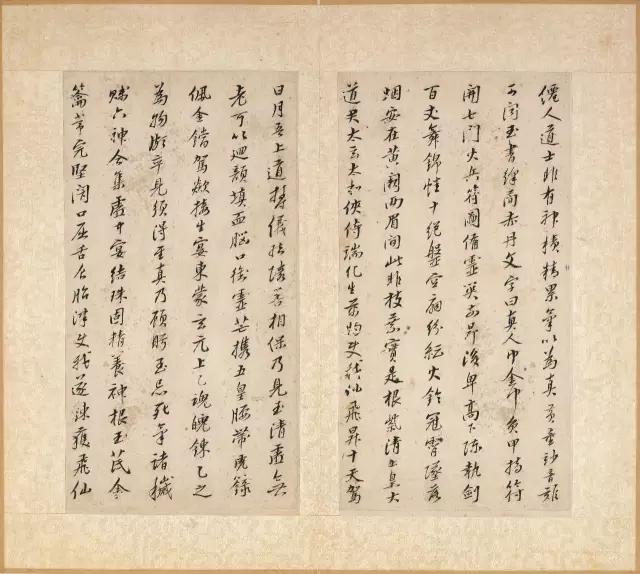 僊人道士非有神積精累氣以為真黃童妙音難
可闻玉書絳簡赤丹文字曰真人巾金巾負甲持符
開七門火兵符圖備靈關前昂後卑高下陳執劍
百丈舞錦幡十絕盤空扇紛紜火鈴冠霄墜落
烟安在黃闕兩眉間此非枝葉實是根紫清上皇大
道君太玄太和俠侍端化生萬物使我仙飛昇十天駕
日月吾上道鬱儀結璘善相保乃見玉清虛無
老可以迴顏填血腦口銜靈芒攜五皇腰帶虎籙
佩金鐺駕歘接生宴東蒙玄元上乙魂魄鍊乙之
為物頗卒見須得至真乃顧眄至忌死氣諸穢
賤六神合集虛中宴結珠固精養神根玉匙金
籥常完堅閉口屈舌食胎津使我遂鍊獲飛仙